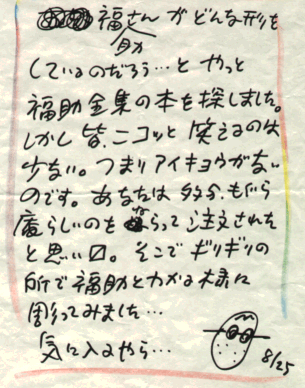 福助さん がどんな形を
しているのだろう…と やっと
福助全集の本を探しました。
しかし皆、ニコッと 笑えるのは
少ない。つまりアイキョウがない
のです。あなたは 多分、もぐら
庵らしいのを ねらって 注文された
と思い〼。そこで ギリギリの
所で福助とわかる様に
彫ってみました…
気に入るやら…
8/25